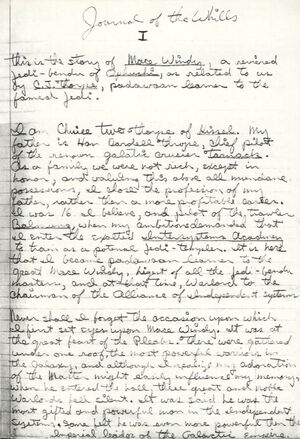 Journal of the Whills
I
this is the story of Mace Windy, a revered
Jedi-bendu of Opuchi, as related to us
by C.J. Thorpe, padawaan learner to the
famed Jedi.
I am Chuiee Two Thorpe of Kissel. My
father is Han Dardell Thorpe, chief pilot
of the renown galactic cruiser Tarnack.
As a family we were not rich, except in
honor, and valuing this above all mundane
possessions, I chose the profession of my
father, rather than a more profitable career.
I was 16 I believe, and pilot of the trawler
Balmung, when my ambitions demanded that
I enter the exalted Intersystems Academy
to train as a potential Jedi-Templer. It is here
that I became padawaan learner to the
great Mace Windy, highest of all the Jedi-bendu
masters, and at that time, Warlord to the
Chairman of the Alliance of Independent Systems
Never shall I forget the occasion upon which
I first set eyes upon Mace Windy. It was at
the great feast of the Pleabs. There were gathered
under one roof, the most powerful warriors in
the Galaxy, and although I realize my adoration
of the Master might influence my memory,
when he entered the hall, these great and noble
Warlords fell silent. It was said he was the
most gifted and powerful man in the Independent
Systems. Some felt he was even more powerful than
the Imperial leader of the Galactic Empire